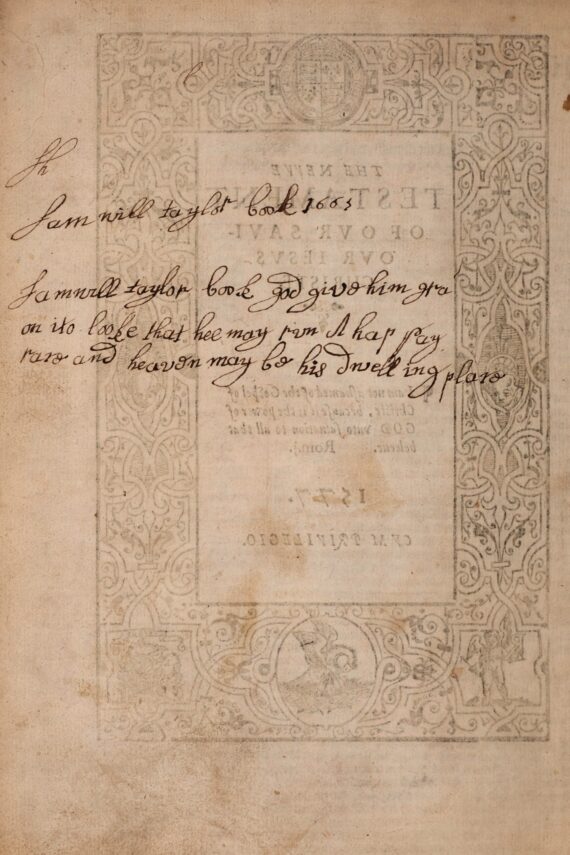 Sh
Samwill taylor book 1665
Samwill taylor book god give him gra
on ito looke that hee may run A hap pay
race and heaven may be his dwelling place
THE NEVVE
TESTAMENT
OF OVR SAVI-
OVR IESVS
CHRISTE
I am not ashamed of the Gospel of
Christe, because it is the power of
GOD vnto saluation to all that
beleeue. Rom.j.
1577.
CVM PRIVILEGIO.